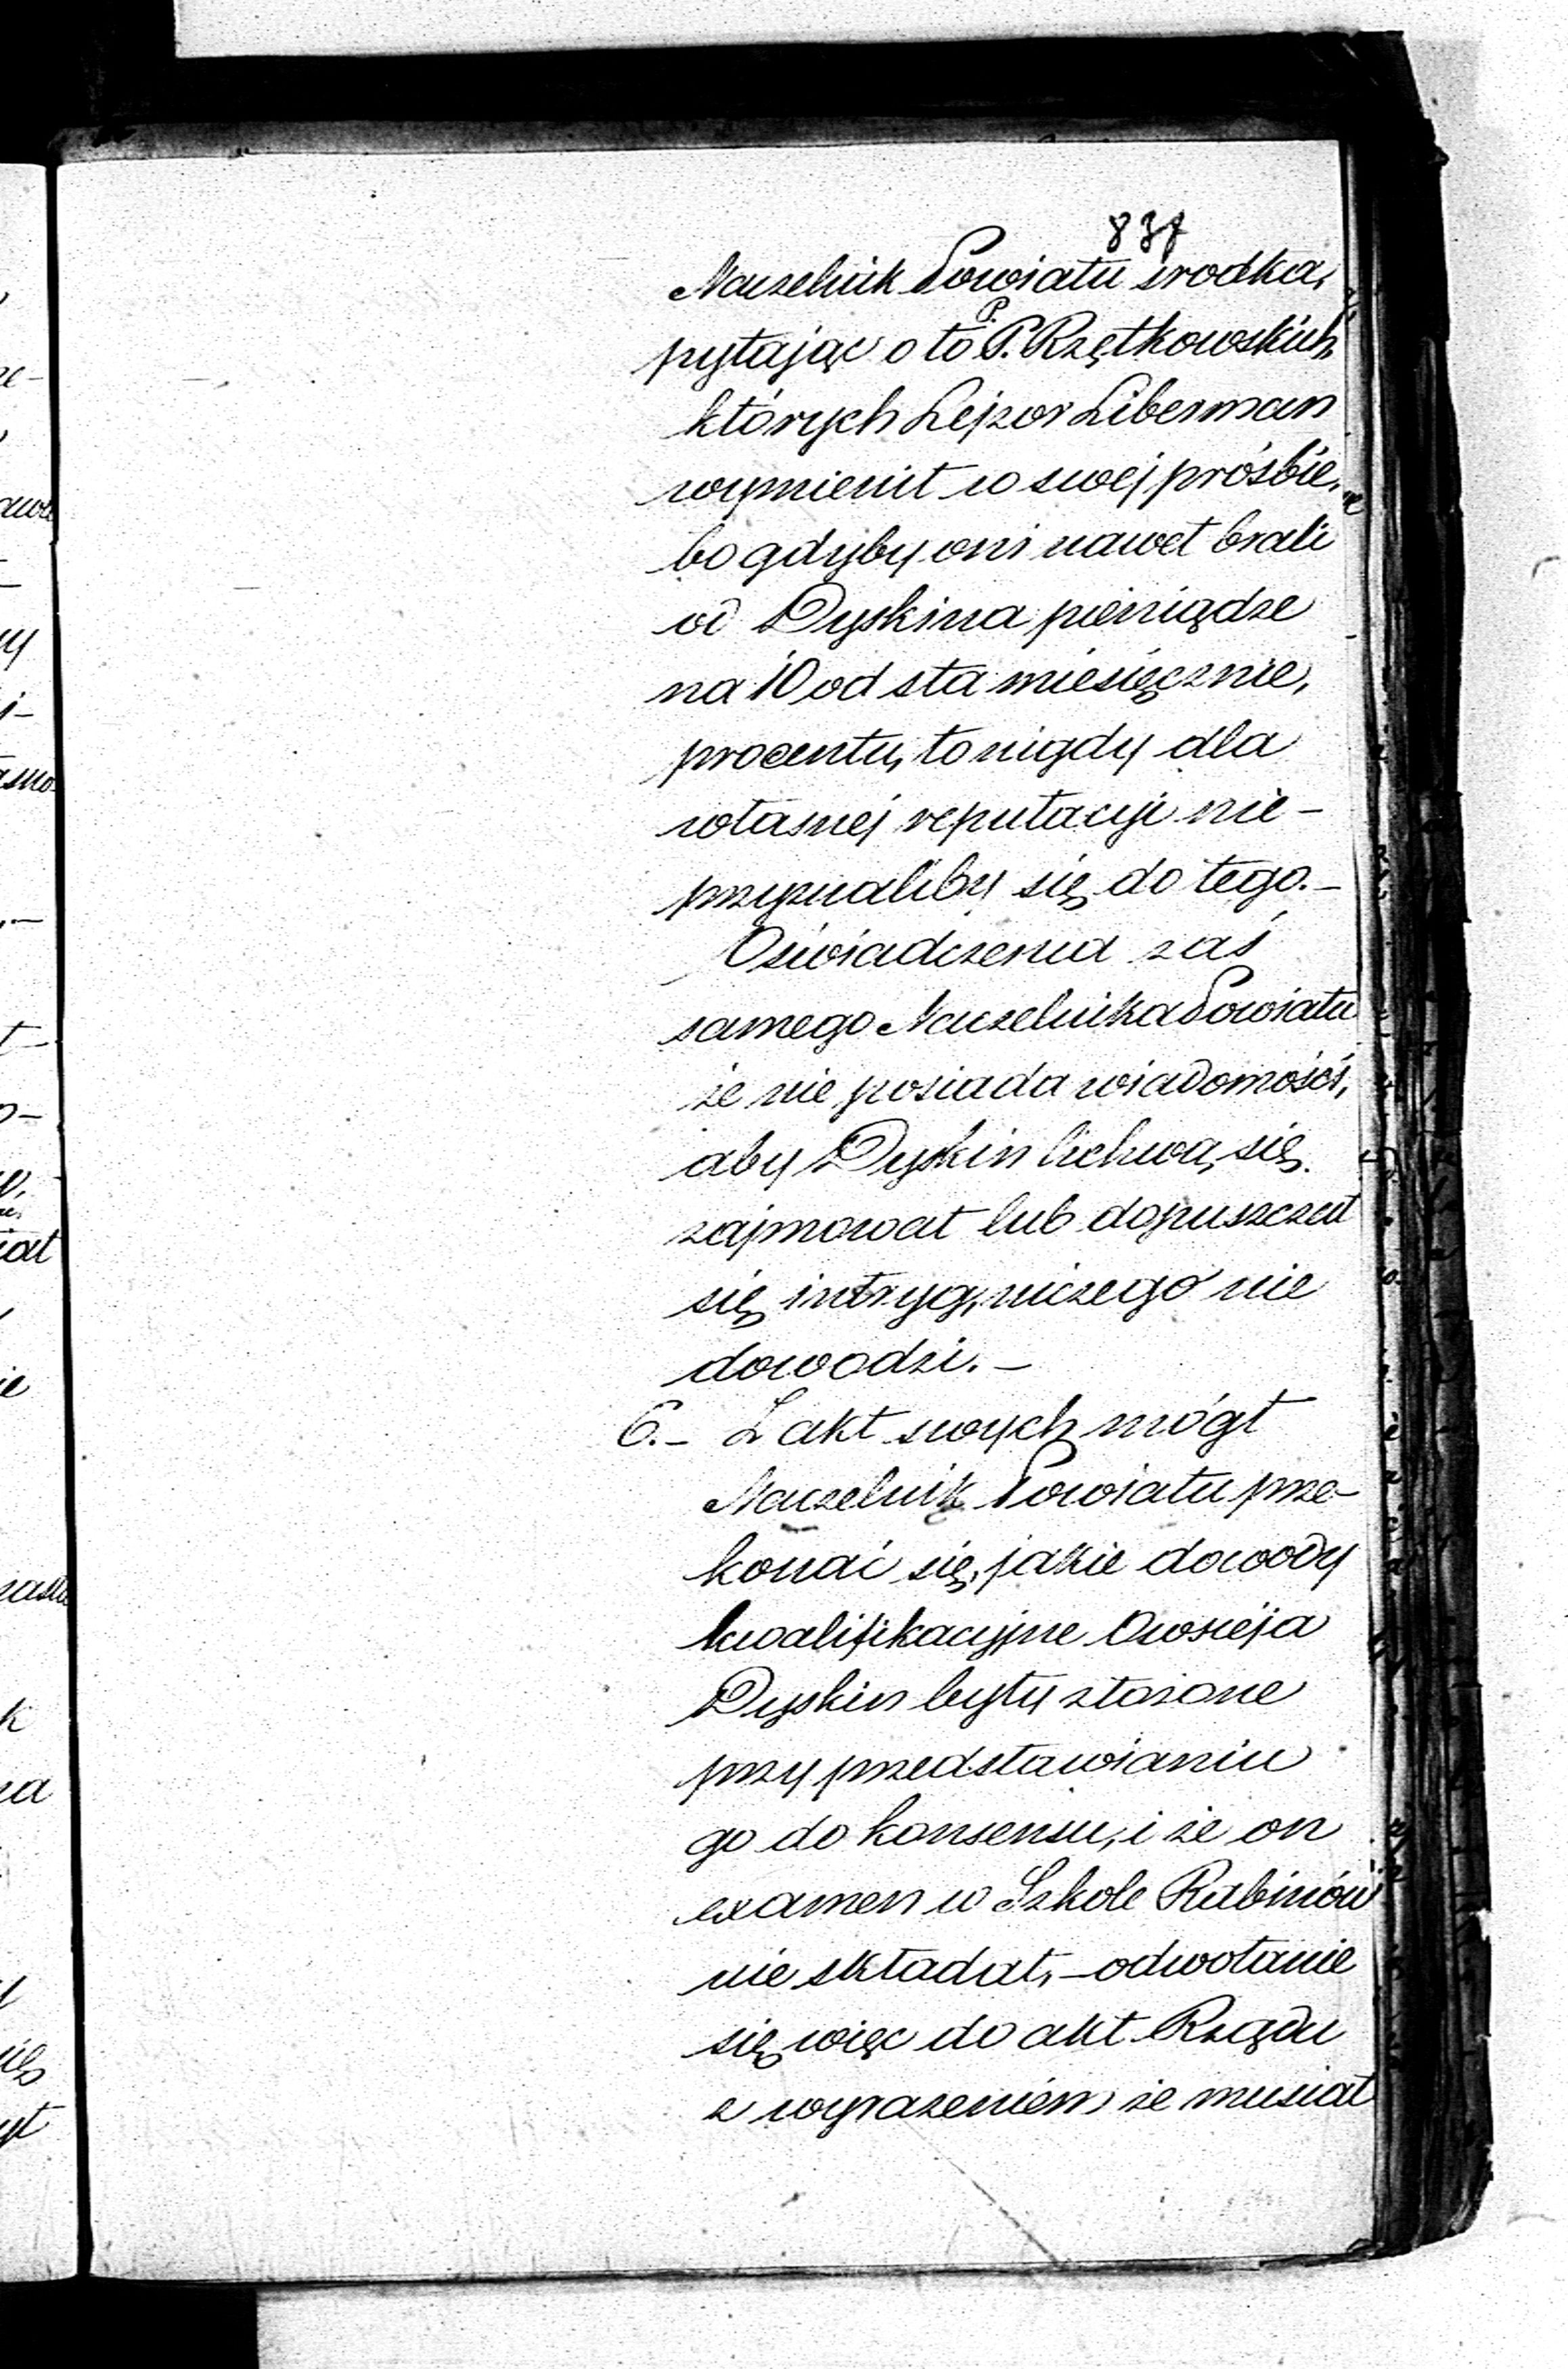 837
Naczelnik Powiatu środka,
pytając o to P.P. Rzętkowskich,
których Lejzor Liberman
wymienił w swej prośbie,
bo gdyby oni nawet brali
od Dyskina pieniądze
na 10 od sta miesięcznie,
procentu, to nigdy dla
własnej reputacyi nie-
przyznaliby się do tego. –
Oświadczenia zaś
samego Naczelnika Powiatu
że nie posiada wiadomości,
aby Dyskin lichwą się
zajmował lub dopuszczał
się intryg, niczego nie
dowodzi. –
6. – Z akt swych mógł
Naczelnik Powiatu prze-
konać się, jakie dowody
kwalifikacyjne Owsieja
Dyskin były złożone
przy przedstawianiu
go do konsensu, i że on
examen w Szkole Rabinów
nie składał, – odwołanie
się więc do akt Rządu
z wyrażeniem że musiał